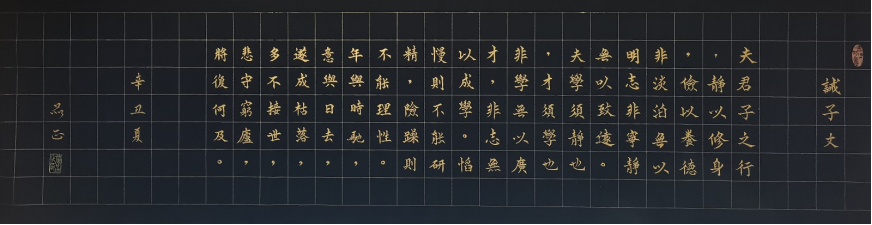 誡子文
夫君子之行
，靜以修身
，儉以養德
非淡泊無以
明志非寧靜
無以致遠。
夫學須靜也
，才須學也
非學無以廣
才，非志無
以成學。慆
慢則不能研
精，險躁則
不能理性。
年與時馳，
意與日去，
遂成枯落，
多不接世，
悲守窮廬，
將後何及。
辛丑夏
正